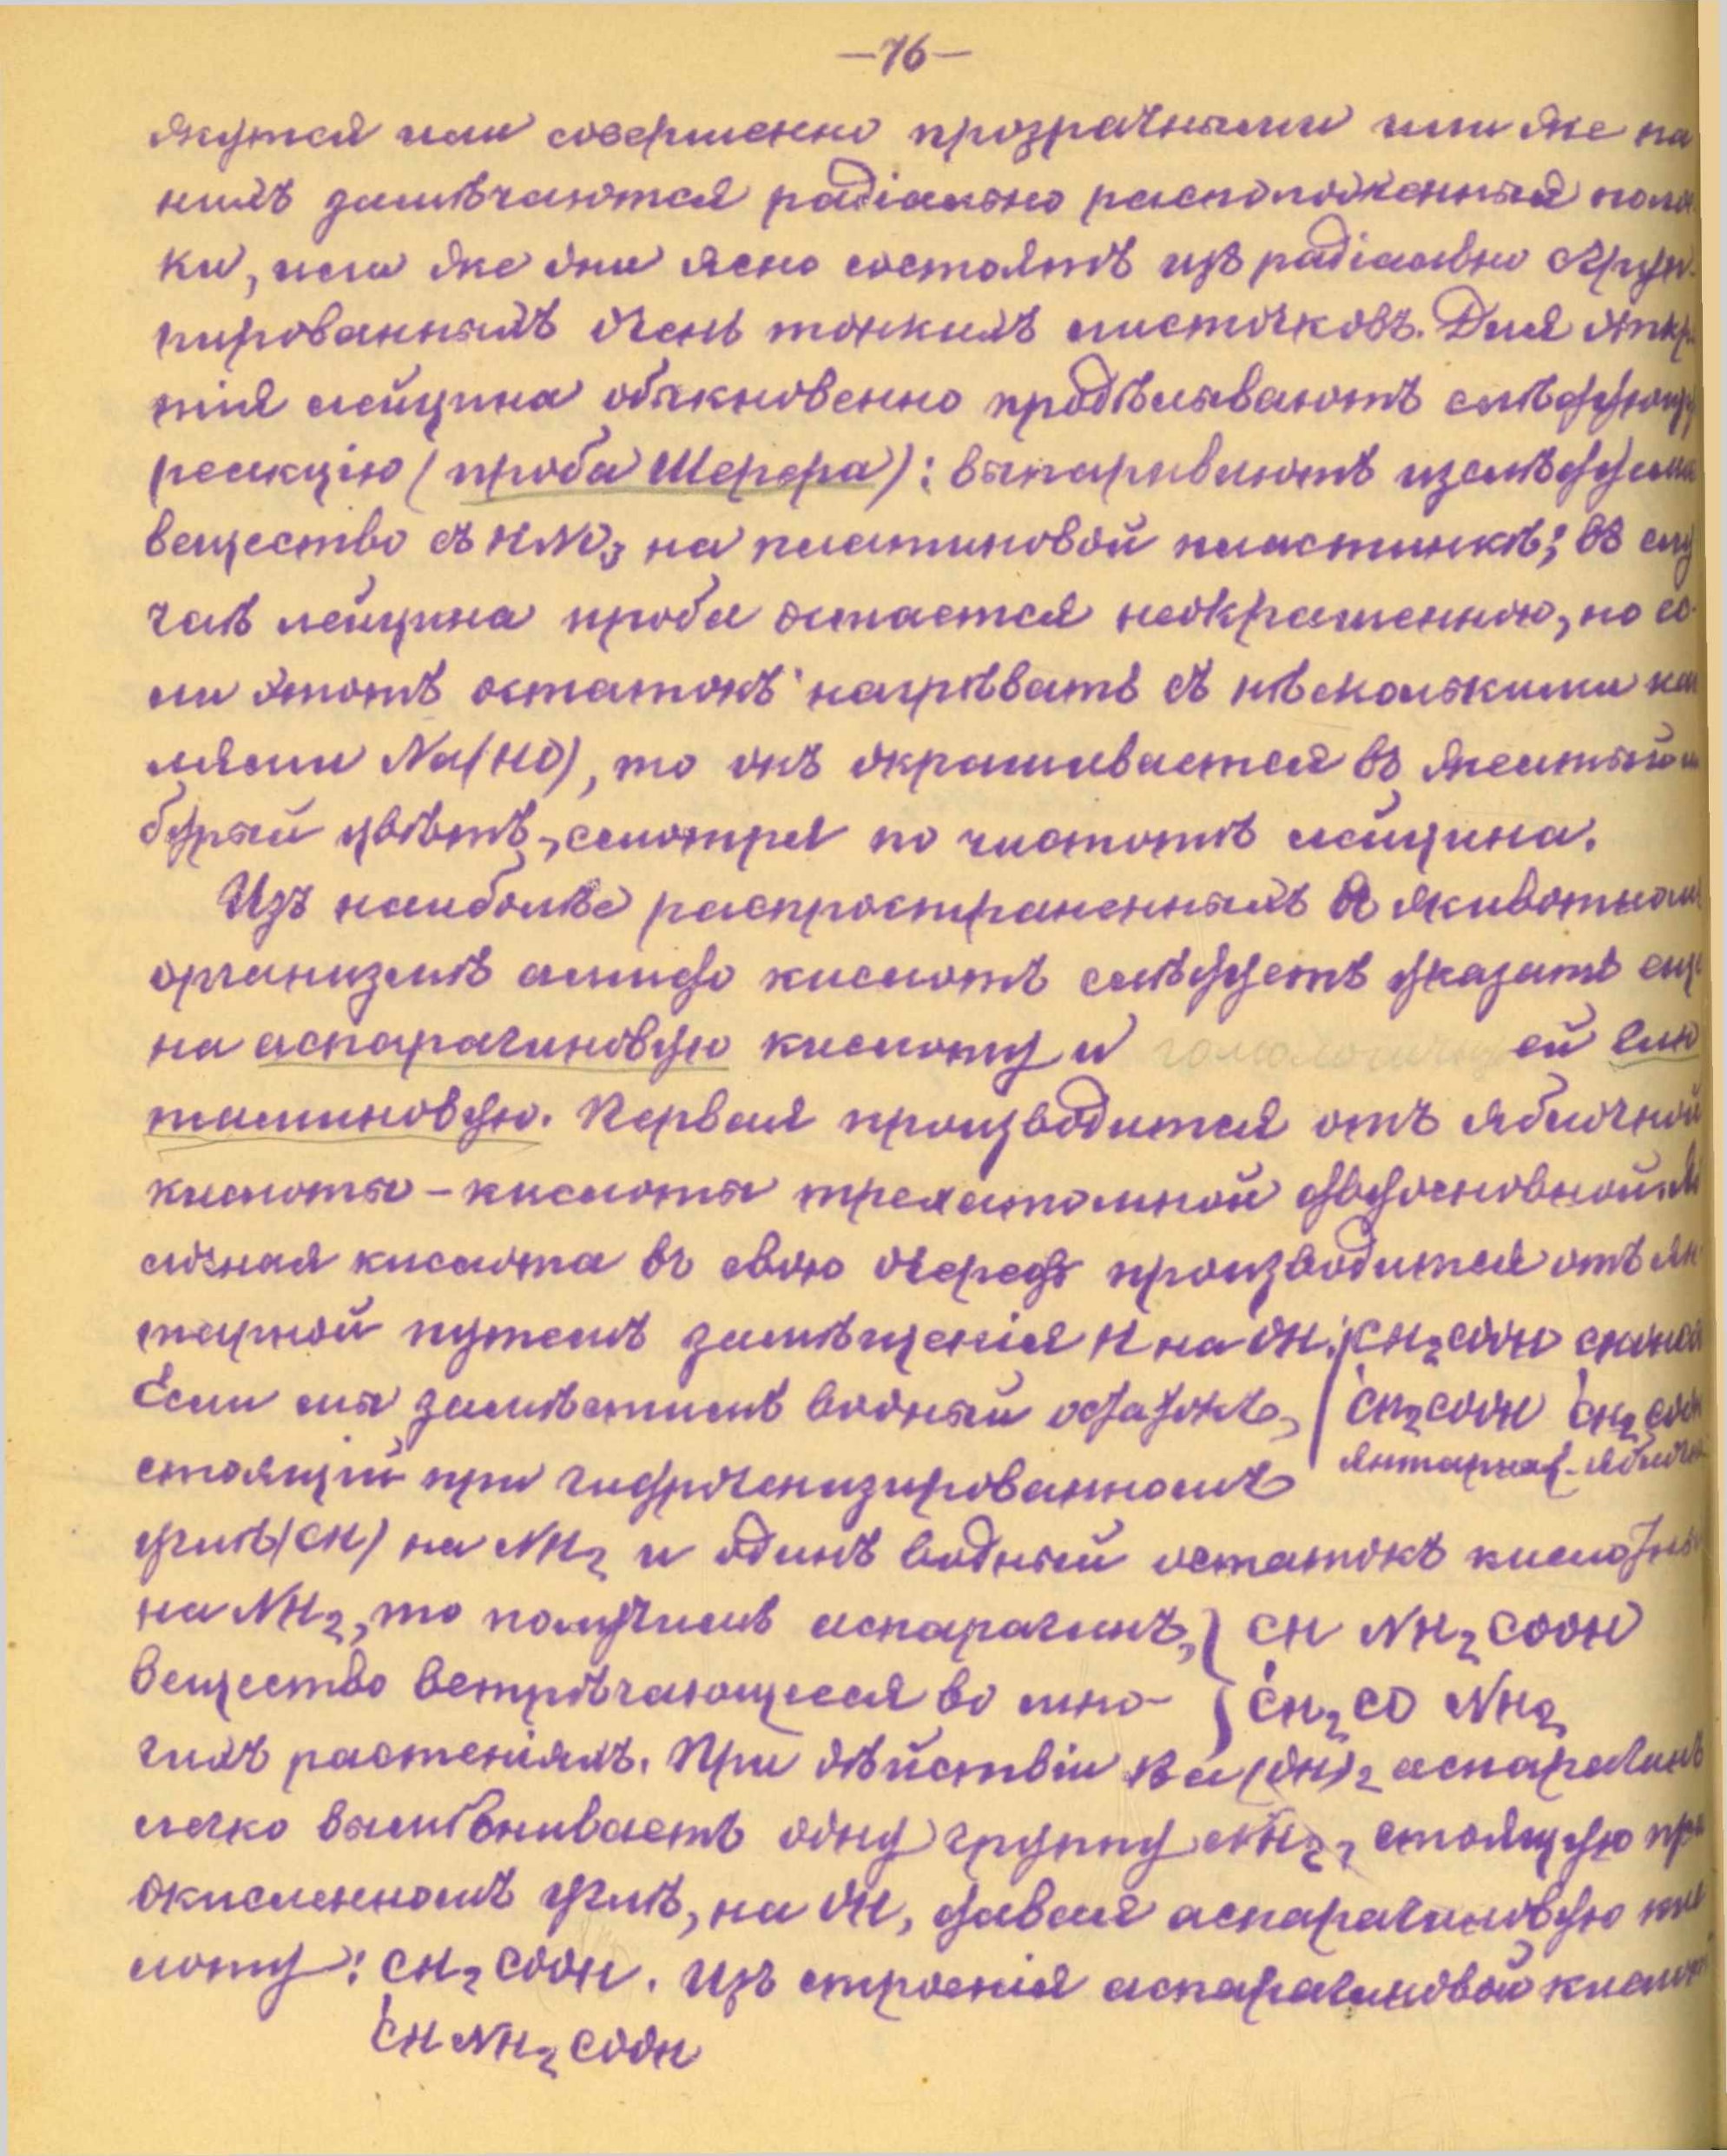 —76—
жутся или совершенно прозрачными или же на
нихъ замѣчаются радіально расположенныя поло
ки, или же они ясно состоятъ изъ радіально сгруп-
пированныхъ очень тонкихъ листочковъ. Для откр
тія лейцина обыкновенно продѣлываютъ слѣдующу
реакцію (проба Шерера): выпариваютъ изслѣдуема
вещество съ HNO₃ на платиновой пластинкѣ; въ слу
чаѣ лейцина проба остается неокрашенною, но ес-
ли этотъ остатокъ нагрѣвать съ нѣсколькими ка
лями Na(HO), то онъ окрашивается въ желтый и
бурый цвѣтъ, смотря по чистотѣ лейцина.
Изъ наиболѣе распространенныхъ въ животномъ
организмѣ амидо кислотъ слѣдуетъ указать ещ
на аспарагиновую кислоту и ей глю
таминовую. Первая производится отъ яблочной
кислоты - кислоты трехатомной двуосновной. Яб
лочная кислота въ свою очередь производится отъ ян
тарной путемъ замѣщенія H на OH. CH₂COOH CHOHCO
Если мы замѣстимъ водный остатокъ, CH₂COOH CH₂COOH
стоящій при гидрогенизированномъ Янтарная - Яблочн
углѣ (CH) на NH₂ и одинъ водный остатокъ кислотный
на NH₂, то получимъ аспарагинъ, } CH NH₂ COOH
вещество встрѣчающееся во мно- } CH₂ CO NH₂
гихъ растеніяхъ. При дѣйствіи Ba(OH)₂ аспарагинъ
легко вымѣниваетъ одну группу NH₂, стоящую при
окисленномъ углѣ, на OH, давая аспарагиновую кис
лоту: CH₂ COOH. Изъ строенія аспарагиновой кислот
CH NH₂ COOH